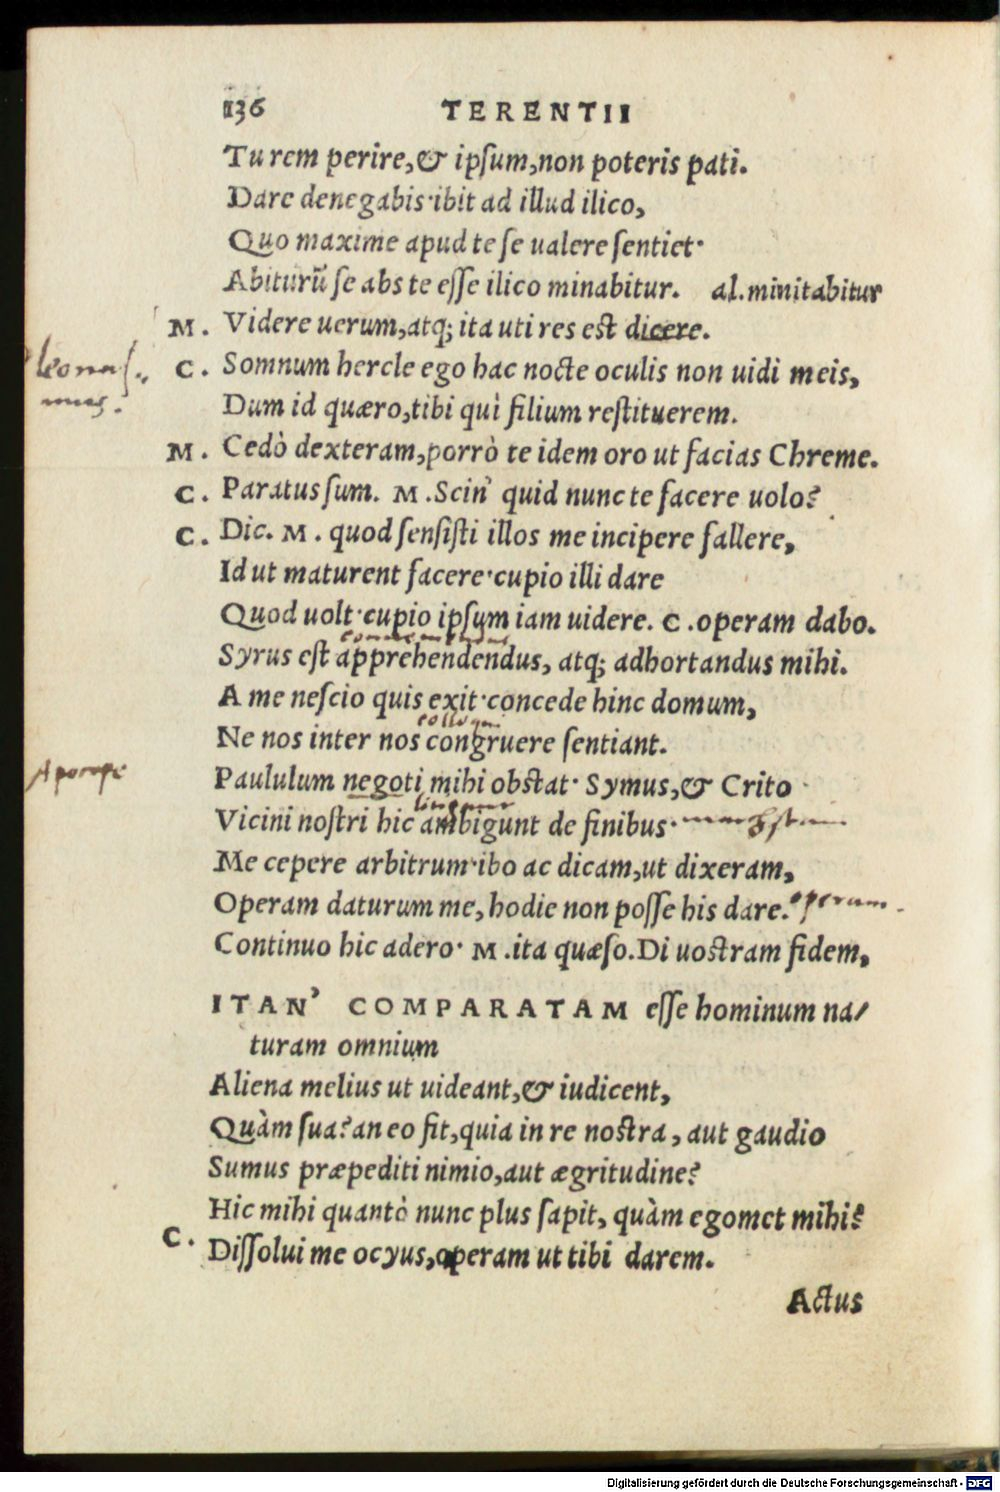 136 TERENTII
Tu rem perire,& ipſum,non poteris pati.
Dare denegabis·ibit ad illud ilico,
Quo maxime apud te ſe ualere ſentiet·
Abiturũ ſe abs te eſſe ilico minabitur. al.minitabitur
M. Videre uerum,atq; ita uti res eſt dicere.
C. Somnum hercle ego hac nocte oculis non uidi meis,
pleonaſmus.
Dum id quæro,tibi quì filium reſtituerem.
M. Cedò dexteram,porrò te idem oro ut facias Chreme.
C. Paratus ſum. M .Scin' quid nunc te facere uolo?
C. Dic. M . quod ſenſiſti illos me incipere fallere,
Id ut maturent facere·cupio illi dare
Quod uolt·cupio ipſum iam uidere. C .operam dabo.
Syrus eſt apprehendendus, atq; adhortandus mihi.
A me neſcio quis exit·concede hinc domum,
colloqui
Ne nos inter nos congruere ſentiant.
Apocope
Paululum negoti mihi obſtat· Symus,& Crito
Vicini noſtri hic ambigunt de finibus·
Me cepere arbitrum·ibo ac dicam,ut dixeram,
Operam daturum me, hodie non poſſe his dare. operam.
Continuo hic adero· M .ita quæſo.Di uoſtram fidem,
ITAN' COMPARATAM eſſe hominum na/
turam omnium
Aliena melius ut uideant,& iudicent,
Quàm ſua?an eo fit,quia in re noſtra, aut gaudio
Sumus præpediti nimio,aut ægritudine?
Hic mihi quantò nunc plus ſapit, quàm egomet mihi?
C. Diſſolui me ocyus,operam ut tibi darem.
Actus
Digitalisierung gefördert durch die Deutsche Forschungsgemeinschaft - DFG